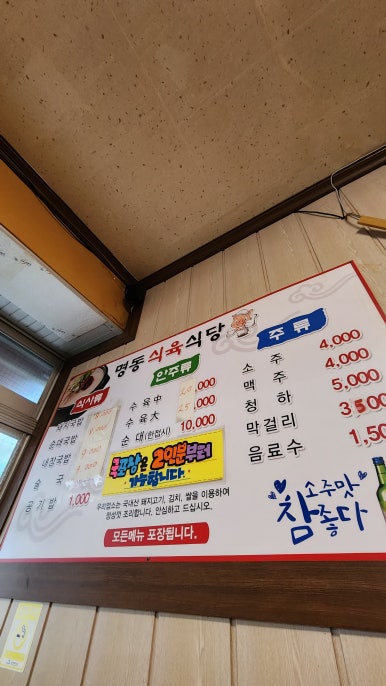 명동식육식당
식사류
돼지국밥
순대국밥
내장국밥
공기밥 1,000
안주류
수육 中 20,000
수육 大 25,000
순대(한접시) 10,000
혼밥상은 2인분부터
가능합니다.
주류
소주 4,000
맥주 4,000
청하 5,000
막걸리 3500
음료수 1,50
우리업소는 국내산 돼지고기, 김치, 쌀을 이용하여
정성껏 조리합니다. 안심하고 드십시오.
모든메뉴 포장됩니다.
소주맛
참 좋다